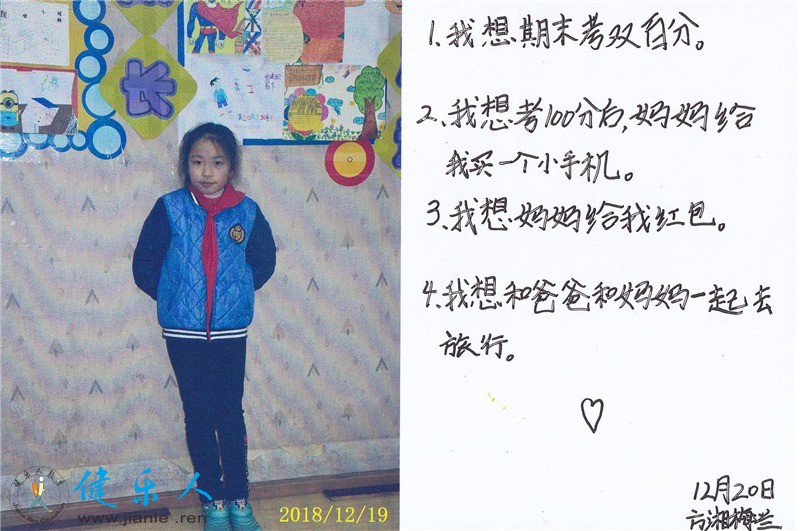 长
健乐人
www.jianle.ren
2018/12/19
1、我想期末考双百分。
2、我想考100分后,妈妈给
我买一个小手机。
3、我想妈妈给我红包。
4、我想和爸爸和妈妈一起去
旅行。
12月20日
方湘梅兰